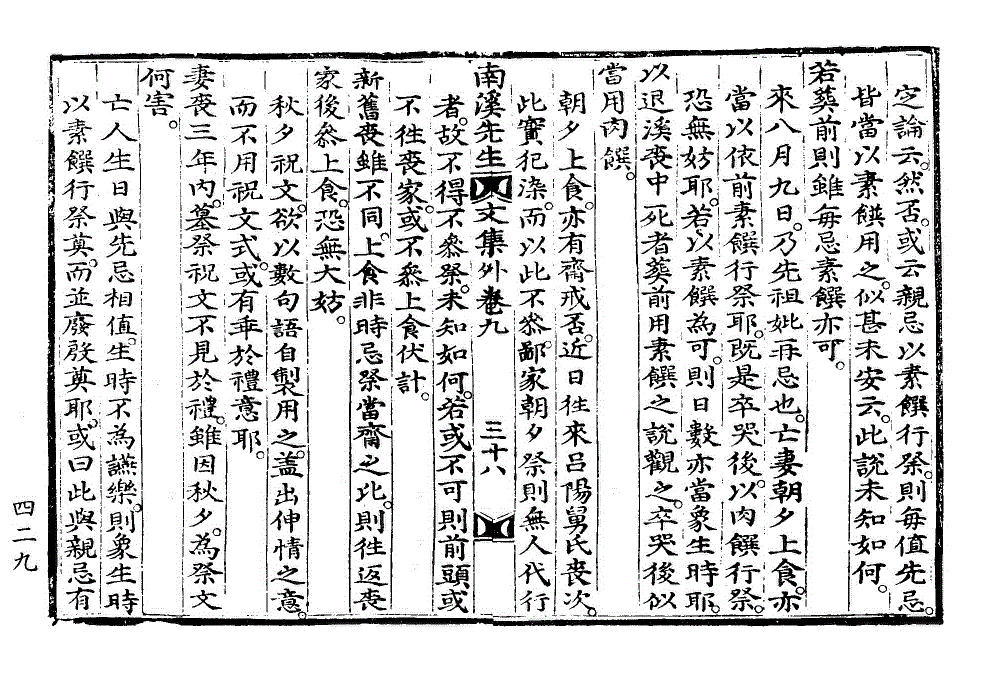 定論云然否。或云親忌以素饌行祭。則每值先忌。
皆當以素饌用之。似甚未安云。此說未知如何。
若葬前則雖每忌素饌亦可。
來八月九日。乃先祖妣再忌也。亡妻朝夕上食。亦
當以依前素饌行祭耶。旣是卒哭後。以肉饌行祭。
恐無妨耶。若以素饌爲可。則日數亦當象生時耶。
以退溪喪中死者葬前用素饌之說觀之。卒哭後似
當用肉饌。
朝夕上食。亦有齋戒否。近日往來呂陽舅氏喪次。
此實犯染。而以此不參。鄙家朝夕祭則無人代行
南溪先生文集外卷九 三十八
者。故不得不參祭。未知如何。若或不可則前頭或
不往喪家。或不參上食伏計。
新舊喪雖不同。上食非時忌祭當齋之比。則往返喪
家後參上食。恐無大妨。
秋夕祝文。欲以數句語自製用之。盖出伸情之意。
而不用祝文式。或有乖於禮意耶。
妻喪三年內。墓祭祝文不見於禮。雖因秋夕。爲祭文
何害。
亡人生日與先忌相值。生時不爲讌樂。則象生時
以素饌行祭奠。而並廢殷奠耶。或曰此與親忌有
四二九